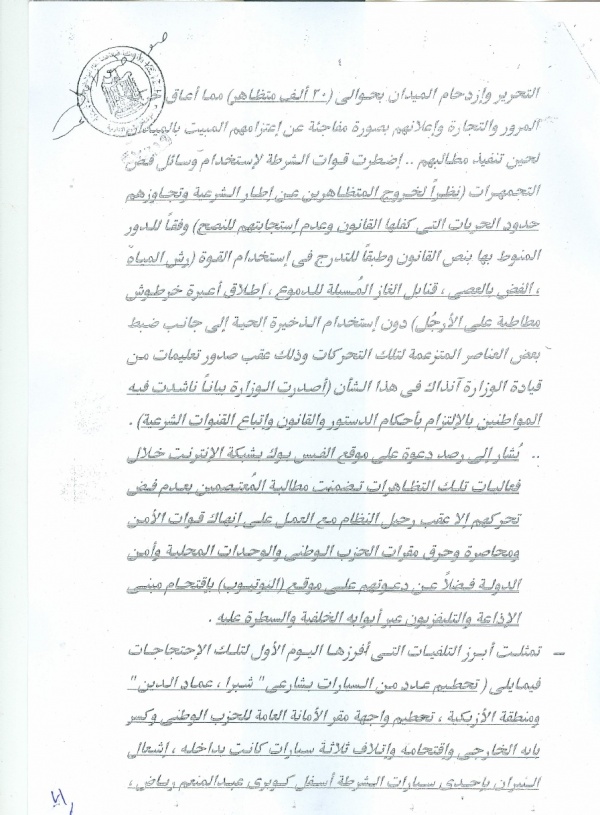 التحرير وإزدحام الميدان بحوالى (٢٠ ألف متظاهر) مما أعاق
المرور والتجارة وإعلانهم بصورة مفاجئة عن إعتزامهم المبيت بالميدان
لحين تنفيذ مطالبهم .. إضطرت قوات الشرطة لإستخدام وسائل فض
التجمهرات (نظراً لخروج المتظاهرين عن إطار الشرعية وتجاوزهم
حدود الحريات التى كفلها القانون وعدم إستجابتهم للنصح) وفقاً للدور
المنوط بها بنص القانون وطبقاً للتدرج فى إستخدام القوة (رش المياه
، الفض بالعصى ، قنابل الغاز المُسيلة للدموع ، إطلاق أعيرة خرطوش
مطاطية على الأرجُل) دون إستخدام الذخيرة الحية إلى جانب ضبط
بعض العناصر المتزعمة لتلك التحركات وذلك عقب صدور تعليمات من
قيادة الوزارة آنذاك فى هذا الشأن (أصدرت الوزارة بياناً ناشدت فيه
المواطنين بالإلتزام بأحكام الدستور والقانون واتباع القنوات الشرعية) .
.. يُشار إلى رصد دعوة على موقع الفيس بوك بشبكة الإنترنت خلال
فعاليات تلك التظاهرات تضمنت مطالبة المُعتصمين بعدم فض
تحركهم إلا عقب رحيل النظام مع العمل على إنهاك قوات الأمن
ومحاصرة وحرق مقرات الحزب الوطنى والوحدات المحلية وأمن
الدولة فضلاً عن دعوتهم على موقع (اليوتيوب) بإقتحام مبنى
الإذاعة والتليفزيون عبر أبوابه الخلفية والسيطرة عليه .
– تمثلت أبرز التلفيات التى أفرزها اليوم الأول لتلك الإحتجاجات
فيمايلى ( تحطيم عدد من السيارات بشارعى " شبرا ، عماد الدين "
ومنطقة الأزبكية ، تحطيم واجهة مقر الأمانة العامة للحزب الوطنى وكسر
بابه الخارجى وإقتحامه وإتلاف ثلاثة سيارات كانت بداخله ، إشعال
النيران بإحدى سيارات الشرطة أسفل كوبرى عبدالمنعم رياض ،